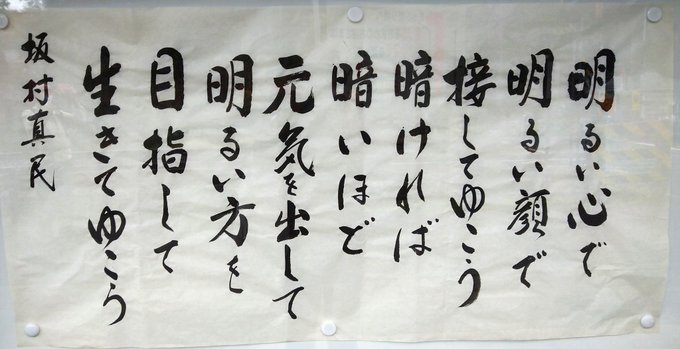 明るい心で
明るい顔で
接してゆこう
暗ければ
暗いほど
元気を出して
明るい方を
目指して
生きてゆこう
坂村真民